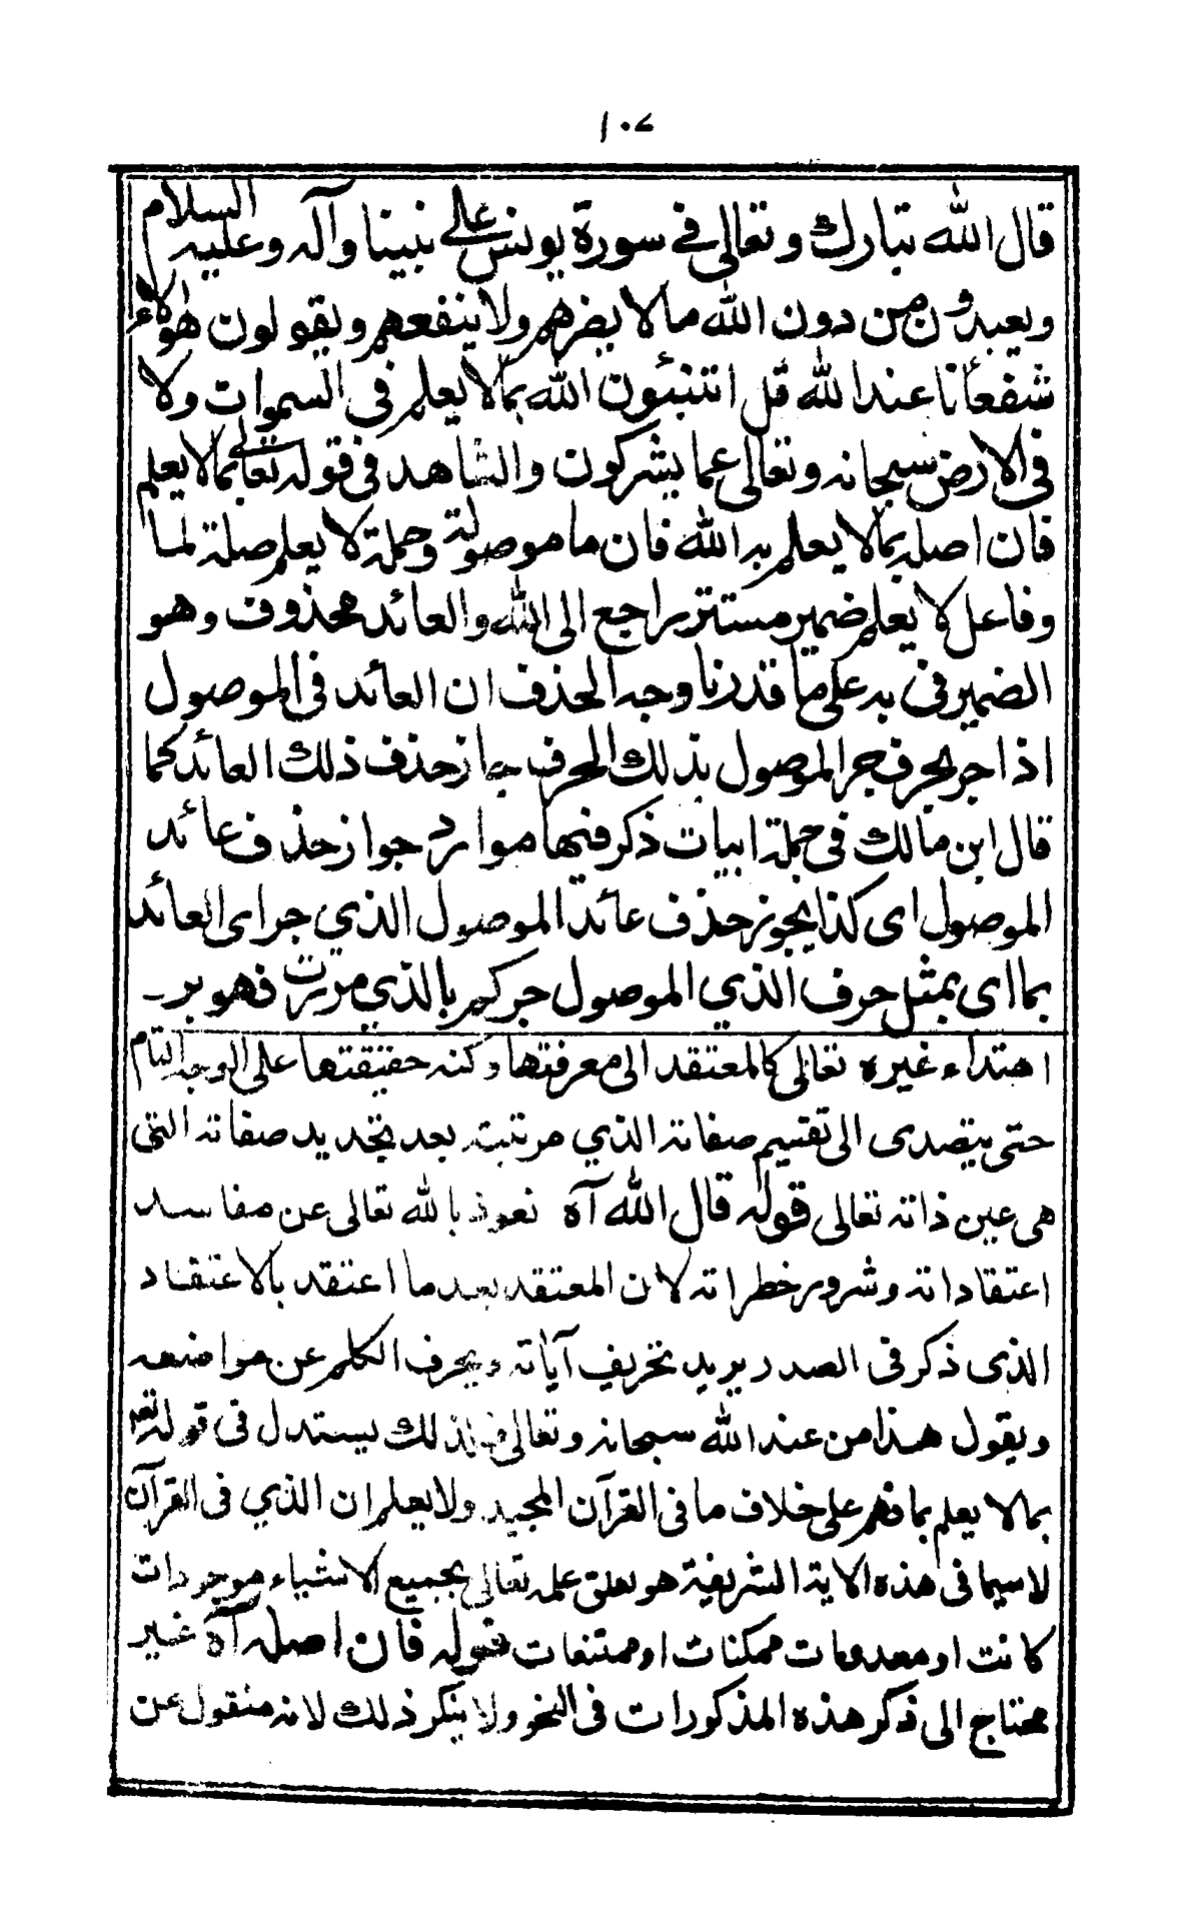 ١٠٧
قال الله تبارك وتعالى في سورة يونس على نبينا وآله وعليه السلام
ويعبدون من دون الله ما لا يضرهم ولا ينفعهم ويقولون هؤلاء
شفعاؤنا عند الله قل اتنبئون الله بما لا يعلم في السموات ولا
في الارض سبحانه وتعالى عما يشركون والشاهد في قوله تعالى بما لا يعلم
فان اصله بما لا يعلم به الله فان ما موصولة وجملة لا يعلم صلة لما
وفاعل لا يعلم ضمير مستتر راجع الى الله والعائد محذوف وهو
الضمير في به على ما قدرنا وجه الحذف ان العائد في الموصول
اذا جر بحرف جر الموصول بذلك الحرف جاز حذف ذلك العائد كما
قال ابن مالك في جملة ابيات ذكر فيها موارد جواز حذف عائد
الموصول اى كذا يجوز حذف عائد الموصول الذي جر اى العائد
بما اى بمثل حرف الذي الموصول جر كمر بالذي مررت فهو بر
اهتداء غيره تعالى كالمعتقد الى معرفتها وكنه حقيقتها على الوجه التام
حتى يتصدى الى تقسيم صفاته الذي مرتبته بعد تحديد صفاته التى
هى عين ذاته تعالى قوله قال الله آه نعوذ بالله تعالى عن مفاسد
اعتقاداته وشرور خطراته لان المعتقد بعد ما اعتقد بالاعتقاد
الذى ذكر فى الصدر يريد تحريف آياته ويحرف الكلم عن مواضعه
ويقول هذا من عند الله سبحانه وتعالى فلذلك يستدل فى قوله تعم
بما لا يعلم بما فهم على خلاف ما فى القرآن المجيد ولا يعلم ان الذي فى القرآن
لا سيما فى هذه الاية الشريفة هو تعلق علمه تعالى بجميع الاشياء موجودات
كانت او معدومات ممكنات او ممتنعات قوله فان اصله آه غير
محتاج الى ذكر هذه المذكورات فى النحو ولا ينكر ذلك لانه منقول عن